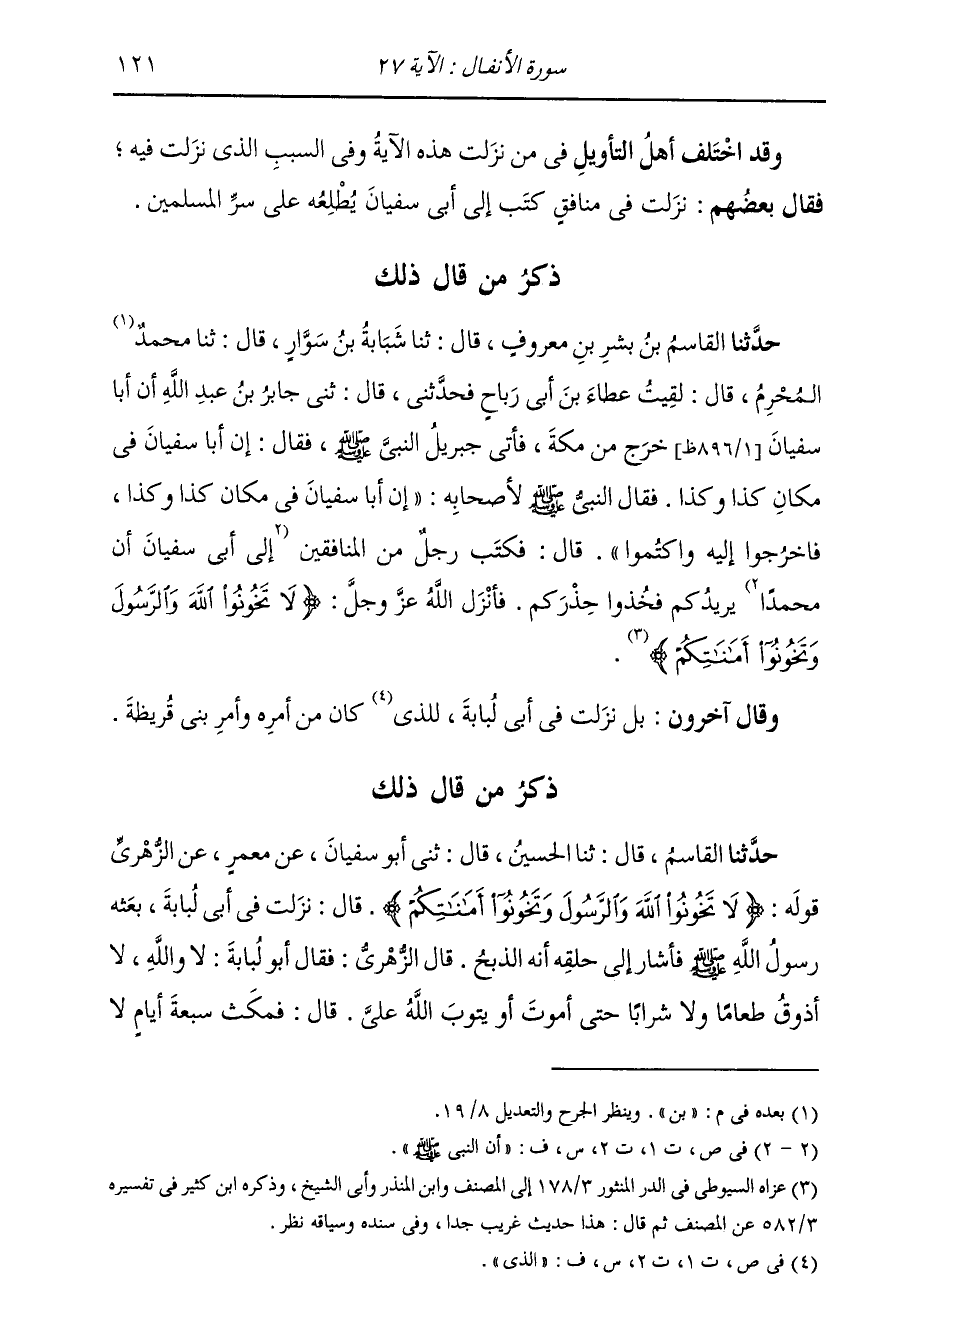 سورة الأنفال : الآية ٢٧ ١٢١
وقد اخْتَلف أهلُ التأويلِ فى من نزَلت هذه الآيةُ وفى السببِ الذى نزَلت فيه ؛
فقال بعضُهم : نزَلت فى منافقٍ كتَب إلى أبى سفيانَ يُطْلِعُه على سرِّ المسلمين .
ذكرُ من قال ذلك
حدَّثنا القاسمُ بنُ بشرِ بنِ معروفٍ ، قال : ثنا شَبَابةُ بنُ سَوَّارٍ ، قال : ثنا محمدٌ(١)
المُحْرِمُ ، قال : لقِيتُ عطاءَ بنَ أبى رَباحٍ فحدَّثنى ، قال : ثنى جابرُ بنُ عبدِ اللَّهِ أن أبا
سفيانَ [٨٩٦/١ظ] خرَج من مكةَ ، فأتى جبريلُ النبىَّ ﷺ ، فقال : إن أبا سفيانَ فى
مكانِ كذا وكذا . فقال النبىُّ ﷺ لأصحابِه : « إن أبا سفيانَ فى مكان كذا وكذا ،
فاخرُجوا إليه واكتُموا » . قال : فكتَب رجلٌ من المنافقين (٢إلى أبى سفيانَ أن
محمدًا٢) يريدُكم فخُذوا حِذْرَكم . فأنْزَل اللَّهُ عزَّ وجلَّ : ﴿ لَا تَخُونُوا۟ ٱللَّهَ وَٱلرَّسُولَ
وَتَخُونُوٓا۟ أَمَـٰنَـٰتِكُمْ ﴾(٣) .
وقال آخرون : بل نزَلت فى أبى لُبابةَ ، للذى(٤) كان من أمرِه وأمرِ بنى قُريظةَ .
ذكرُ من قال ذلك
حدَّثنا القاسمُ ، قال : ثنا الحسينُ ، قال : ثنى أبو سفيانَ ، عن معمرٍ ، عن الزُّهْرىِّ
قولَه : ﴿ لَا تَخُونُوا۟ ٱللَّهَ وَٱلرَّسُولَ وَتَخُونُوٓا۟ أَمَـٰنَـٰتِكُمْ ﴾ . قال : نزَلت فى أبى لُبابةَ ، بعَثه
رسولُ اللَّهِ ﷺ فأشار إلى حلقِه أنه الذبحُ . قال الزُّهْرىُّ : فقال أبو لُبابةَ : لا واللَّهِ ، لا
أذوقُ طعامًا ولا شرابًا حتى أموتَ أو يتوبَ اللَّهُ علىَّ . قال : فمكَث سبعةَ أيامٍ لا
(١) بعده فى م : « بن » . وينظر الجرح والتعديل ٨/ ١٩.
(٢ - ٢) فى ص ، ت ١، ت ٢، س ، ف : « أن النبى ﷺ » .
(٣) عزاه السيوطى فى الدر المنثور ١٧٨/٣ إلى المصنف وابن المنذر وأبى الشيخ ، وذكره ابن كثير فى تفسيره
٥٨٢/٣ عن المصنف ثم قال : هذا حديث غريب جدا ، وفى سنده وسياقه نظر .
(٤) فى ص ، ت ١، ت ٢، س ، ف : « الذى » .